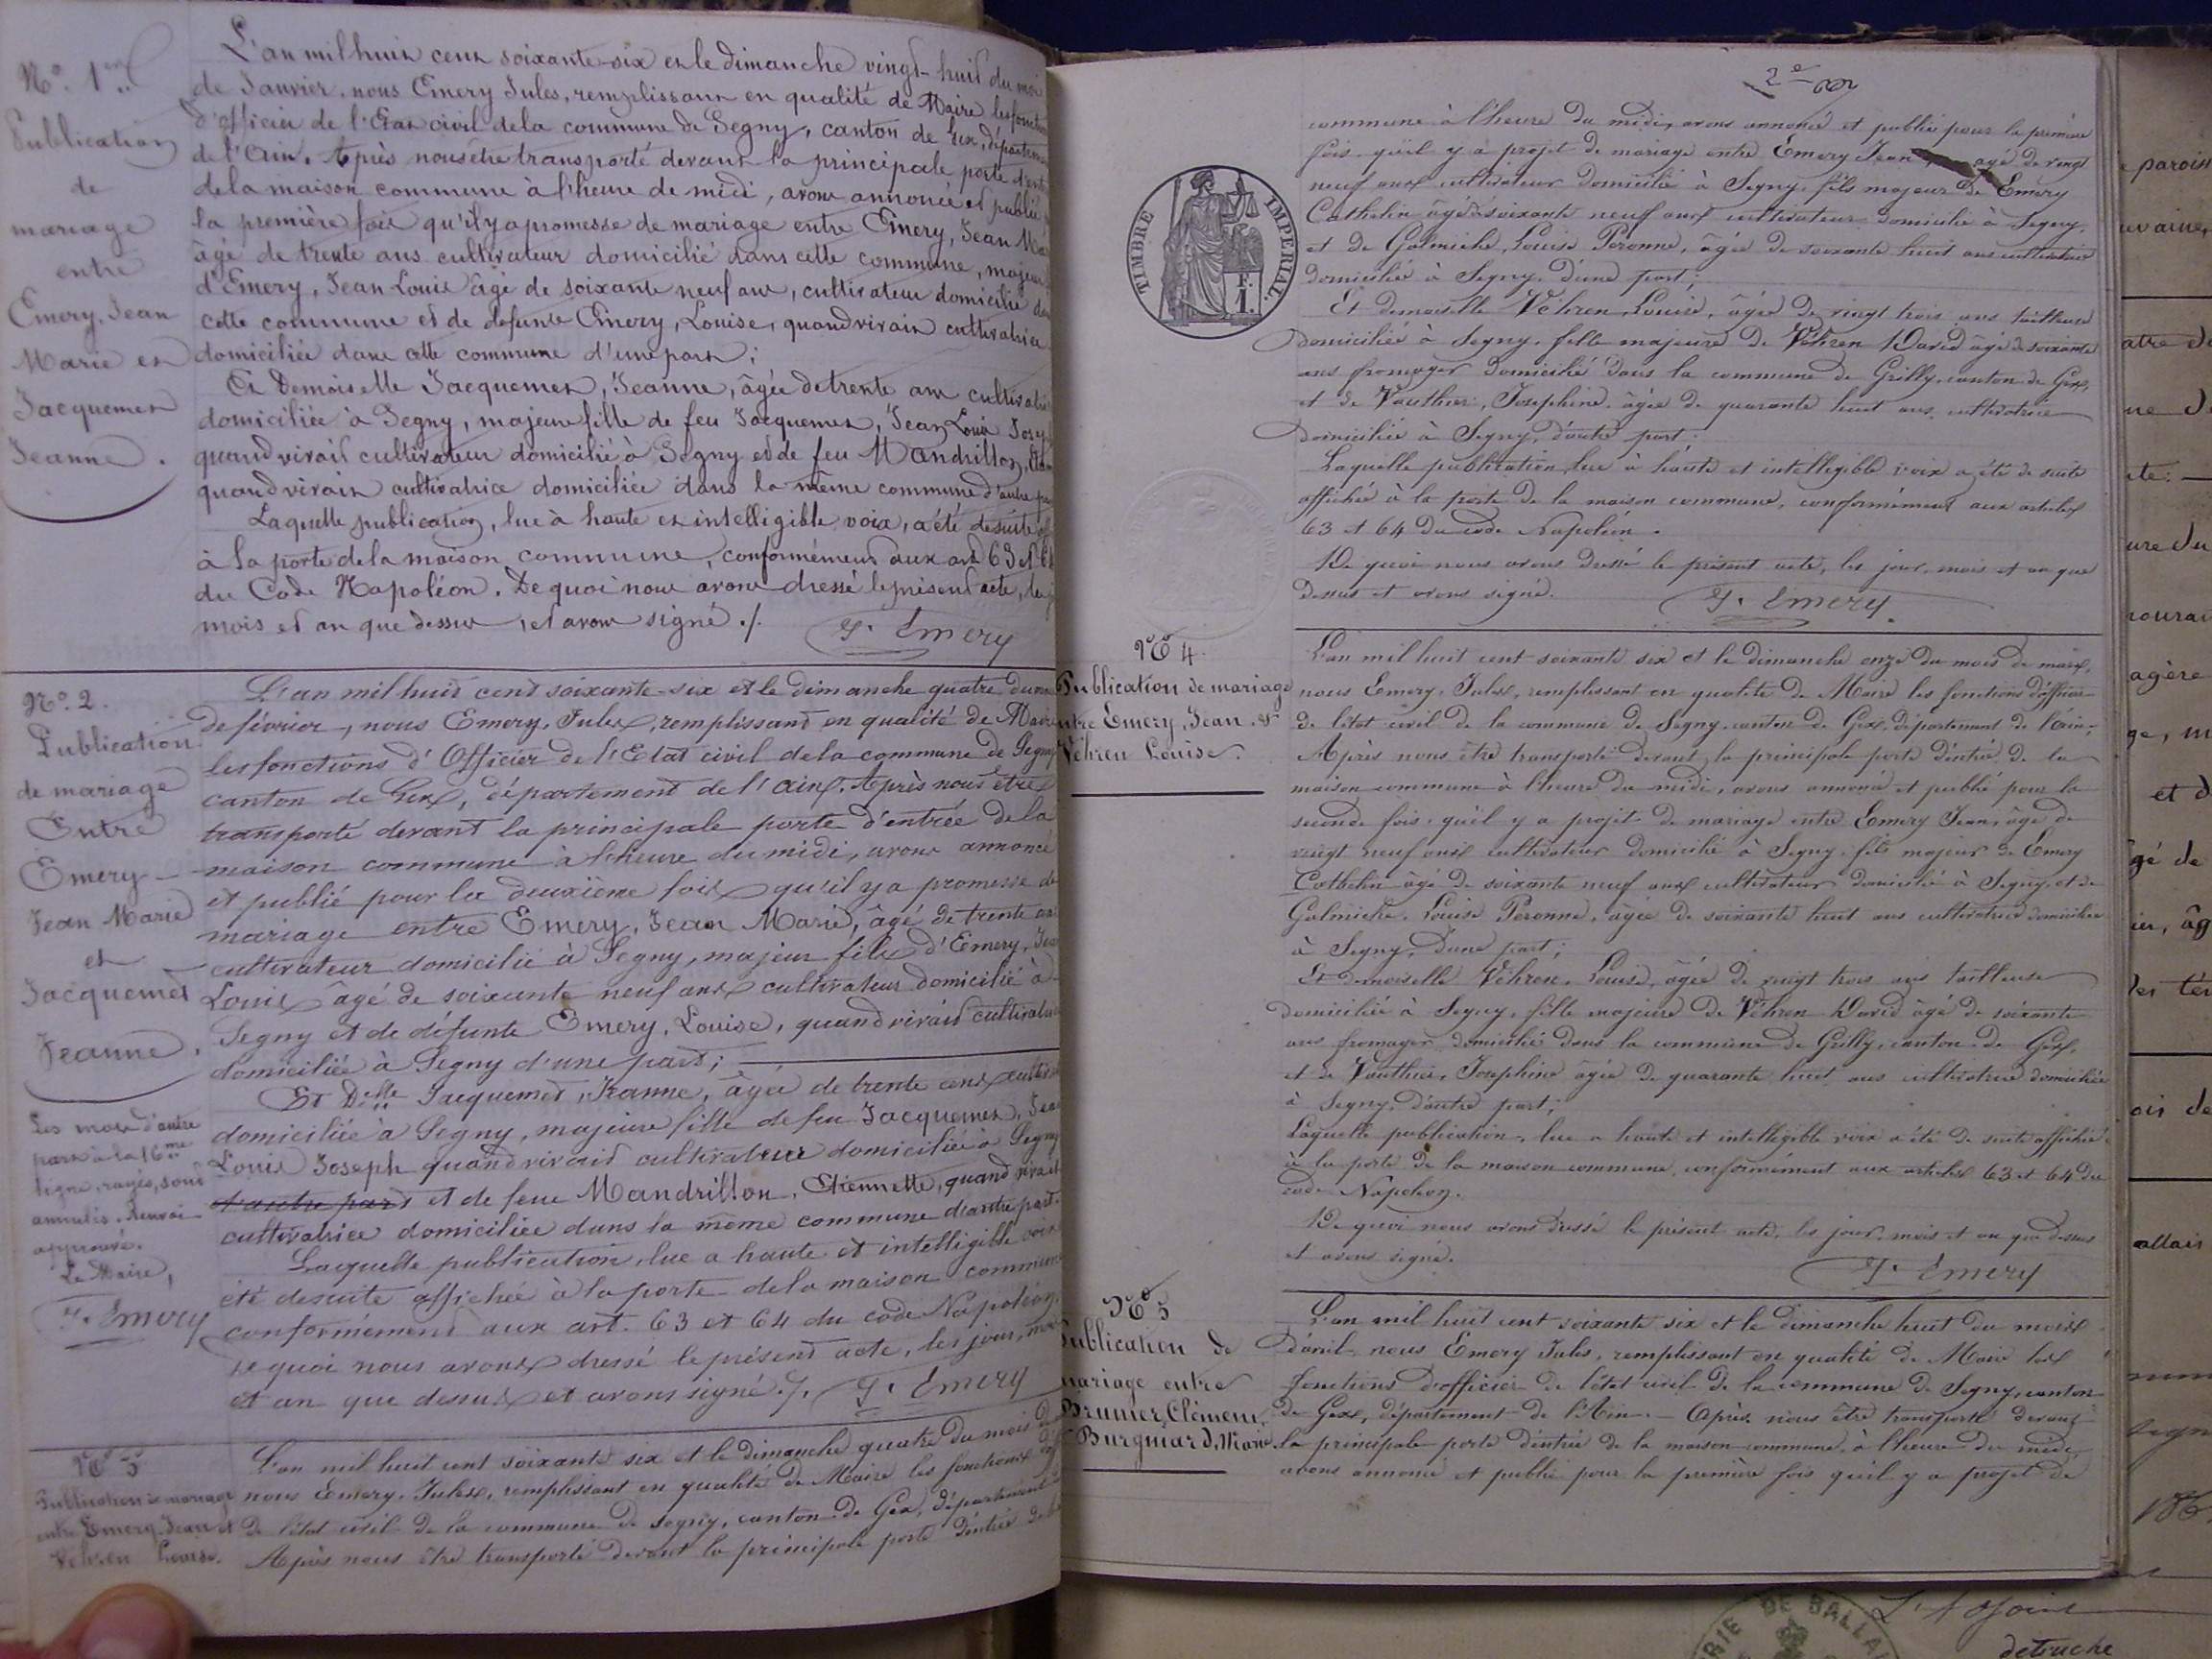 N.o 1er
Publication
de
mariage
entre
Emery, Jean
Marie et
Jacquemet
Jeanne.
L'an mil huit cent soixante-six et le dimanche vingt-huit du
de Janvier, nous Emery Jules, remplissant en qualité de Maire les
d'officier de l'Etat civil de la commune de Segny, canton de Gex,
de l'Ain. Après nous être transporté devant la principale porte
de la maison commune à l'heure de midi, avons annoncé et publié
la première fois qu'il y a promesse de mariage entre Emery, Jean
âgé de trente ans cultivateur domicilié dans cette commune, majeur
d'Emery, Jean Louis âgé de soixante neuf ans, cultivateur domicilié
cette commune et de defunte Emery, Louise, quand vivait cultivatrice
domiciliée dans cette commune d'une part;
Et Demoiselle Jacquemet, Jeanne, âgée de trente ans
domiciliée à Segny, majeure fille de feu Jacquemet, Jean Louis
quand vivait cultivateur domicilié à Segny et de feu Mandrillon,
quand vivait cultivatrice domiciliée dans la même commune d'autre
Laquelle publication, lue à haute et intelligible voix, a été de suite
à la porte de la maison commune, conformément aux art 63 et
du Code Napoléon. De quoi nous avons dressé le présent acte,
mois et an que dessus, et avons signé ./.
J. Emery
N.o 2.
Publication
de mariage
Entre
Emery
Jean Marie
et
Jacquemet
Jeanne.
Les mots d'autre
part à la 16me
ligne, rayés, sont
annulés. Renvoi
approuvé.
Le Maire,
J. Emery
L'an mil huit cent soixante-six et le dimanche quatre du
de février, nous Emery, Jules, remplissant en qualité de Maire
les fonctions d'Officier de l'Etat civil de la commune de Segny
canton de Gex, département de l'Ain. Après nous être
transporté devant la principale porte d'entrée de la
maison commune à l'heure du midi, avons annoncé
et publié pour la deuxième fois qu'il y a promesse de
mariage entre Emery, Jean Marie, âgé de trente ans
cultivateur domicilié à Segny, majeur fils d'Emery,
Louis âgé de soixante neuf ans cultivateur domicilié à
Segny et de défunte Emery, Louise, quand vivait
domiciliée à Segny d'une part;
Et Delle Jacquemet, Jeanne, âgée de trente ans
domiciliée à Segny, majeure fille de feu Jacquemet,
Louis Joseph quand vivait cultivateur domicilié à Segny
d'autre part et de feue Mandrillon, Etiennette, quand vivait
cultivatrice domiciliée dans la même commune d'autre part.
Laquelle publication, lue a haute et intelligible
été de suite affichée à la porte de la maison commune
conformément aux art. 63 et 64 du code Napoléon.
De quoi nous avons dressé le présent acte, les jour, mois
et an que dessus et avons signé ./. J. Emery
No 3
Publication de mariage
entre Emery, Jean et
Vehren Louise.
L'an mil huit cent soixante six et le dimanche quatre du mois
nous Emery, Jules, remplissant en qualité de Maire les fonctions
de l'état civil de la commune de Segny, canton de Gex, département
Après nous être transporté devant la principale porte d'entrée
2e
commune à l'heure du midi, avons annoncé et publié pour la première
fois qu'il y a projet de mariage entre Emery Jean âgé de vingt
neuf ans cultivateur domicilié à Segny, fils majeur de Emery
Cathelin âgé de soixante neuf ans cultivateur domicilié à Segny,
et de Galmiche, Louise Peronne, âgée de soixante huit ans cultivatrice
domiciliée à Segny, d'une part;
TIMBRE IMPERIAL.
1 F.
Et demoiselle Véhren, Louise, âgée de vingt trois ans tailleuse
domiciliée à Segny, fille majeure de Véhren David âgé de soixante
ans fromager domicilié dans la commune de Grilly, canton de Gex,
et de Vauthier, Josephine, âgée de quarante huit ans, cultivatrice
domiciliée à Segny, d'autre part.
Laquelle publication, lue à haute et intelligible voix a été de suite
affichée à la porte de la maison commune, conformément aux articles
63 et 64 du code Napoléon.
De quoi nous avons dressé le présent acte, les jour, mois et an que
dessus et avons signé. J. Emery
No 4
Publication de mariage
entre Emery, Jean, et
Vehren Louise.
L'an mil huit cent soixante six et le dimanche onze du mois de mars,
nous Emery, Jules, remplissant en qualité de Maire les fonctions d'officier
de l'état civil de la commune de Segny, canton de Gex, département de l'Ain.
Après nous être transporté devant la principale porte d'entrée de la
maison commune à l'heure du midi, avons annoncé et publié pour la
seconde fois, qu'il y a projet de mariage entre Emery Jean, âgé de
vingt neuf ans cultivateur domicilié à Segny, fils majeur de Emery
Cathelin âgé de soixante neuf ans cultivateur domicilié à Segny, et de
Galmiche, Louise Peronne, âgée de soixante huit ans cultivatrice domiciliée
à Segny, d'une part;
Et demoiselle Véhren, Louise, âgée de vingt trois ans tailleuse
domiciliée à Segny, fille majeure de Véhren David âgé de soixante
ans fromager, domicilié dans la commune de Grilly, canton de Gex,
et de Vauthier, Josephine âgée de quarante huit ans cultivatrice domiciliée
à Segny, d'autre part;
Laquelle publication, lue a haute et intelligible voix a été de suite affichée
à la porte de la maison commune, conformément aux articles 63 et 64 du
code Napoléon.
De quoi nous avons dressé le présent acte, les jour, mois et an que dessus
et avons signé. J. Emery
No 5
Publication de
mariage entre
Brunier, Clément,
Burgniard, Marie
L'an mil huit cent soixante six et le dimanche huit du mois
d'avril, nous Emery Jules, remplissant en qualité de Maire les
fonctions d'officier de l'état civil de la commune de Segny, canton
de Gex, département de l'Ain. - Après nous être transporté devant
la principale porte d'entrée de la maison commune, à l'heure de midi,
avons annoncé et publié pour la première fois qu'il y a projet de
et d
allais
L'Adjoint
détruche